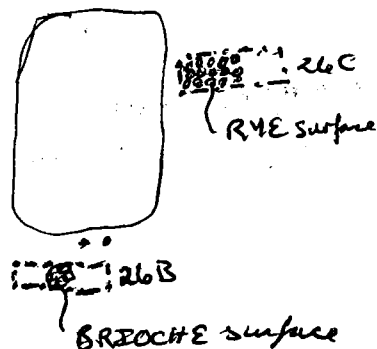 26C
RYE surface
26B
BRIOCHE surface